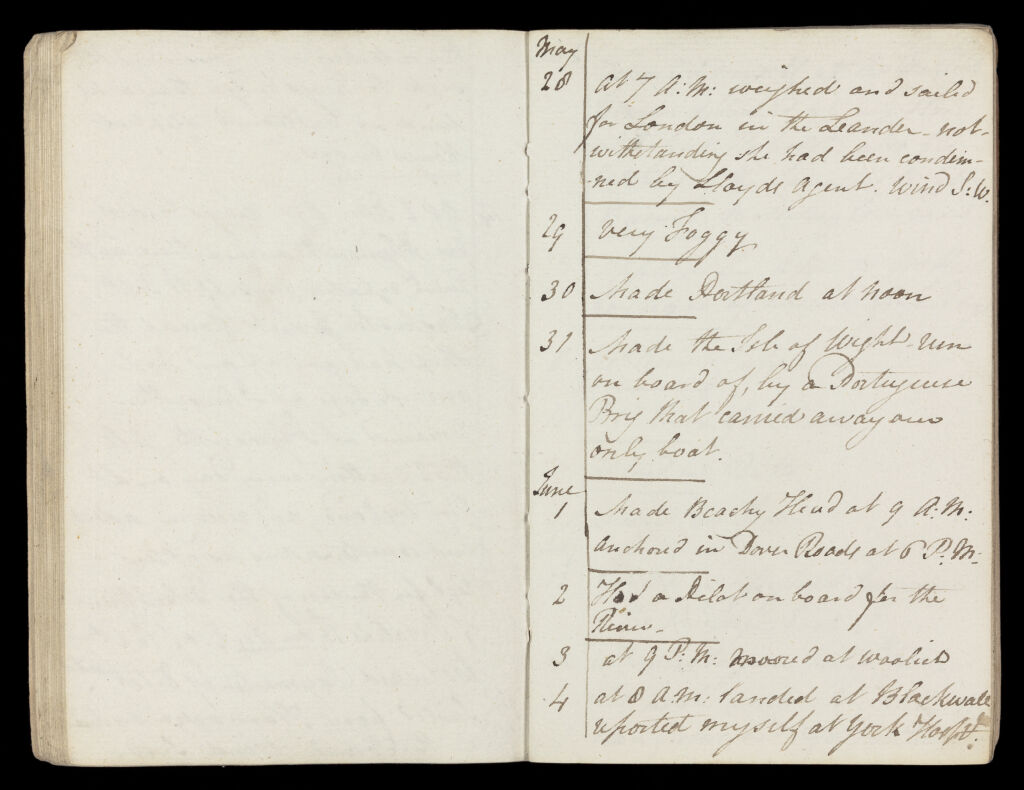 May
28 at 7 A:M: weighed and sailed
for London in the Leander - not-
withstanding she had been condem-
-ned by Lloyds Agent. Wind S:W.
29 very Foggy
30 Made Portland at noon
31 Made the Isle of Wight - run
on board of, by a Portuguese
Brig that carried away our
only boat.
June
1 Made Beachy Head at 9 A:M:
anchored in Dover Roads at 6 P:M-
2 Had a Pilot on board for the
River -
3 at 9 P:M: moored at
4 at 8 A:M: landed at Blackwall
reported myself at York Hospt.